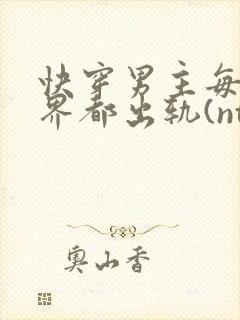 快穿男主每
界都出轨(nt
奥山香